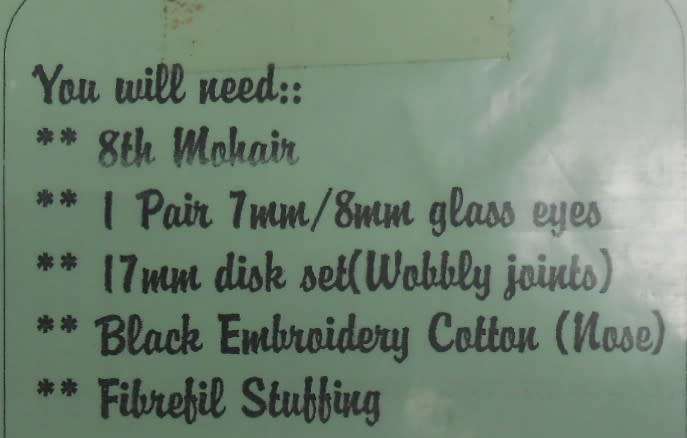 You will need::
** 8th Mohair
** 1 Pair 7mm/8mm glass eyes
** 17mm disk set(Wobbly joints)
** Black Embroidery Cotton (Nose)
** Fibrefil Stuffing